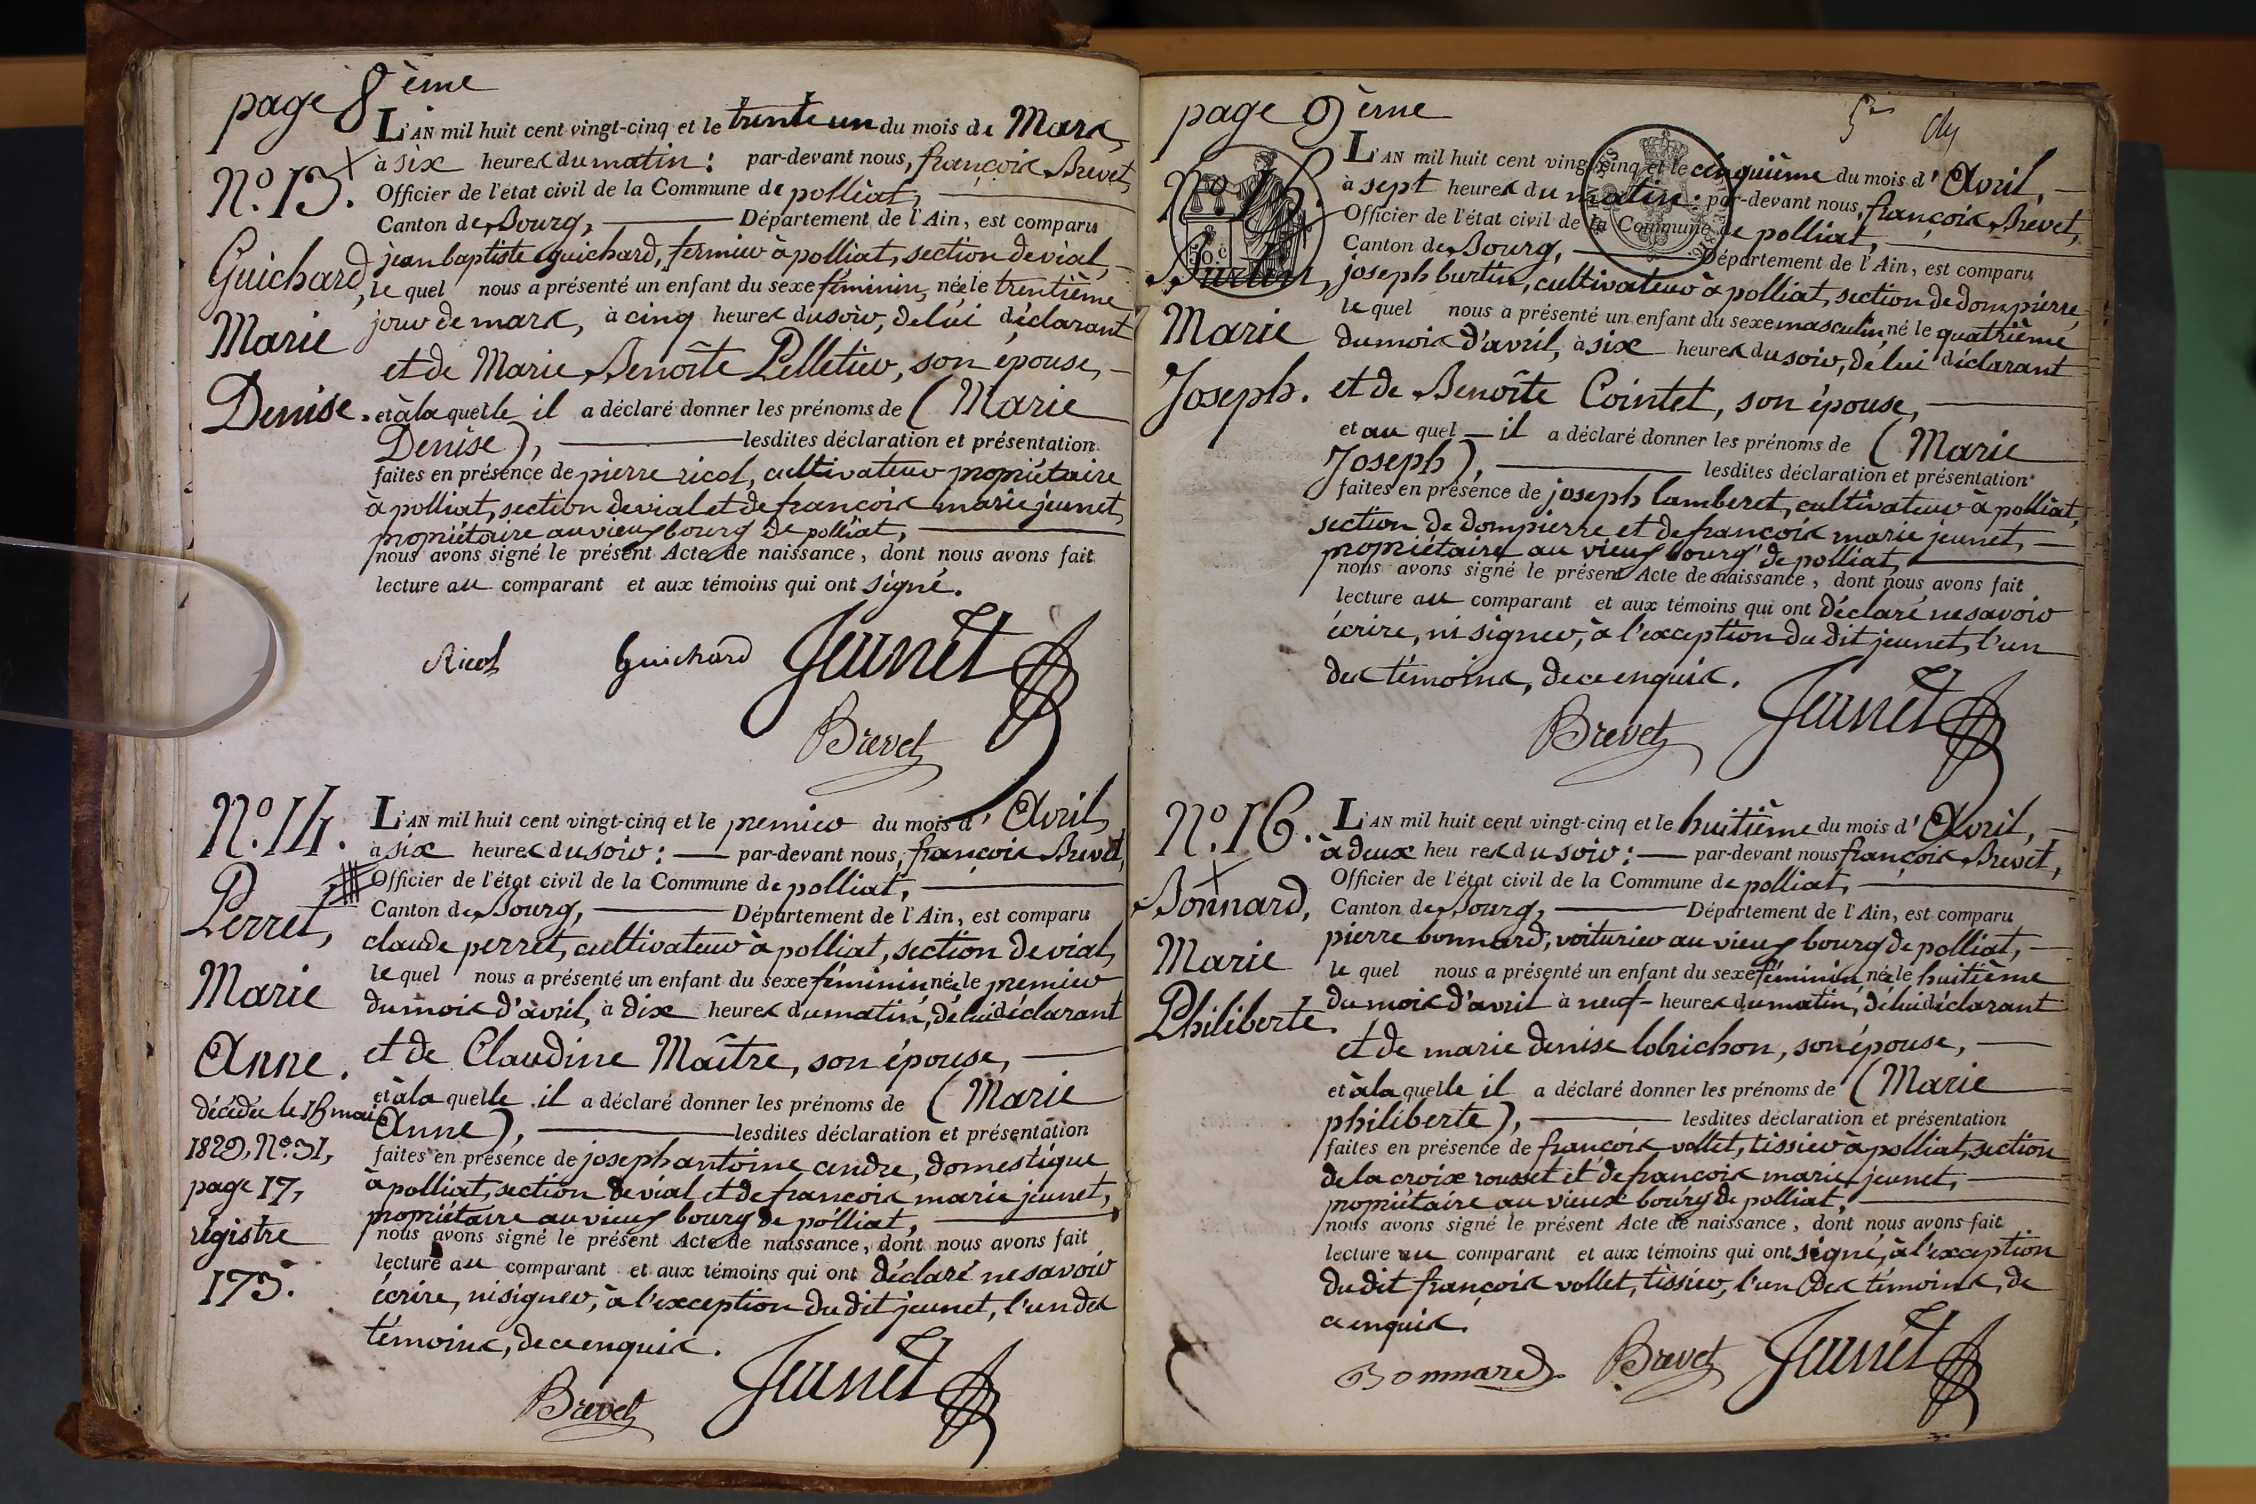 page 8ème
L'AN mil huit cent vingt-cinq et le trente un du mois de Mars,
à six heures du matin : par-devant nous, françois Brevet,
N.º 13.
Officier de l'état civil de la Commune de polliat,
Canton de Bourg, Département de l'Ain, est comparu
Guichard,
jean baptiste guichard, fermier à polliat, section de vial,
le quel nous a présenté un enfant du sexe féminin, née le trentième
Marie
jour de mars, à cinq heures du soir, de lui déclarant
et de Marie Benoîte Pelletier, son épouse,
Denise.
et à la quelle il a déclaré donner les prénoms de (Marie
Denise), lesdites déclaration et présentation
faites en présence de pierre ricol, cultivateur propriétaire
à polliat, section de vial et de françois marie jeunet,
propriétaire au vieux bourg de polliat,
nous avons signé le présent Acte de naissance, dont nous avons fait
lecture au comparant et aux témoins qui ont signé.
Ricol Guichard Jeunet
Brevet
N.º 14.
L'AN mil huit cent vingt-cinq et le premier du mois d'Avril,
à six heures du soir : par-devant nous, françois Brevet,
Officier de l'état civil de la Commune de polliat,
Perret,
Canton de Bourg, Département de l'Ain, est comparu
claude perret, cultivateur à polliat, section de vial,
le quel nous a présenté un enfant du sexe féminin née le premier
Marie
du mois d'avril, à dix heures du matin, de lui déclarant
et de Claudine Maître, son épouse,
Anne.
et à la quelle il a déclaré donner les prénoms de (Marie
décédée le 15 mai
Anne), lesdites déclaration et présentation
1829, N.º 31,
faites en présence de joseph antoine andre, domestique
page 17,
à polliat, section de vial et de françois marie jeunet,
propriétaire au vieux bourg de polliat,
régistre
nous avons signé le présent Acte de naissance, dont nous avons fait
lecture au comparant et aux témoins qui ont déclaré ne savoir
173.
écrire, ni signer, à l'exception du dit jeunet, l'un des
témoins, de ce enquis.
Brevet Jeunet
page 9ème
L'AN mil huit cent vingt-cinq et le cinquième du mois d'Avril,
N.º 15.
à sept heures du matin : par-devant nous, françois Brevet,
Officier de l'état civil de la Commune de polliat,
Canton de Bourg, Département de l'Ain, est comparu
Burtin,
joseph burtin, cultivateur à polliat, section de dompierre,
le quel nous a présenté un enfant du sexe masculin, né le quatrième
Marie
du mois d'avril, à six heures du soir, de lui déclarant
Joseph.
et de Benoîte Cointet, son épouse,
et au quel il a déclaré donner les prénoms de (Marie
Joseph), lesdites déclaration et présentation
faites en présence de joseph lamberet, cultivateur à polliat,
section de dompierre et de françois marie jeunet,
propriétaire au vieux bourg de polliat,
nous avons signé le présent Acte de naissance, dont nous avons fait
lecture au comparant et aux témoins qui ont déclaré ne savoir
écrire, ni signer, à l'exception du dit jeunet, l'un
des témoins, de ce enquis.
Brevet Jeunet
N.º 16.
L'AN mil huit cent vingt-cinq et le huitième du mois d'Avril,
à deux heures du soir : par-devant nous françois Brevet,
Officier de l'état civil de la Commune de polliat,
Bonnard,
Canton de Bourg, Département de l'Ain, est comparu
pierre bonnard, voiturier au vieux bourg de polliat,
Marie
le quel nous a présenté un enfant du sexe féminin, née le huitième
du mois d'avril à neuf heures du matin, de lui déclarant
Philiberte.
et de marie denise lobrichon, son épouse,
et à la quelle il a déclaré donner les prénoms de (Marie
philiberte), lesdites déclaration et présentation
faites en présence de françois vollet, tissier à polliat, section
de la croix rousset et de françois marie jeunet,
propriétaire au vieux bourg de polliat,
nous avons signé le présent Acte de naissance, dont nous avons fait
lecture au comparant et aux témoins qui ont signé, à l'exception
du dit françois vollet, tissier, l'un des témoins, de
ce enquis.
Bonnard Brevet Jeunet